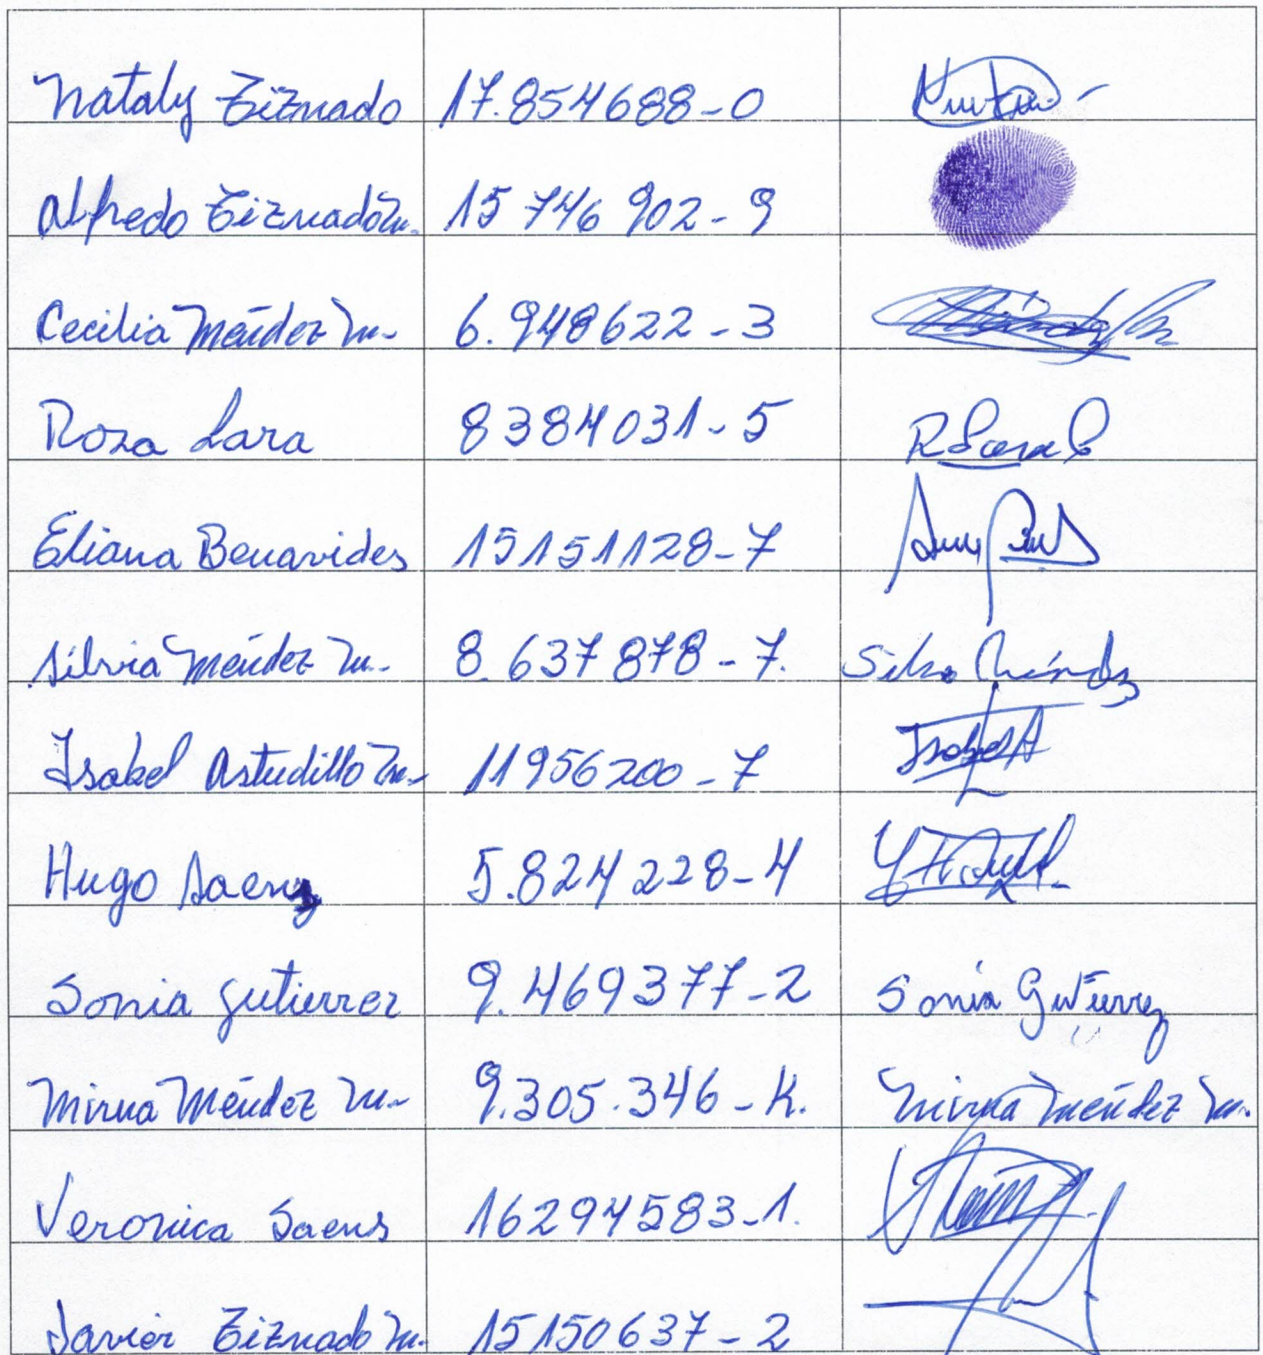 Nataly Tiznado 17.854688-0
Alfredo Tiznado M. 15746902-9
Cecilia Méndez M. 6.948622-3
Rosa Lara 8384031-5 R Lara C
Eliana Benavides 15151128-7
Silvia Méndez M. 8.637878-7. Silvia Méndez
Isabel Astudillo M. 11956200-7 Isabel A
Hugo Saenz 5.824228-4
Sonia Gutierrez 9.469377-2 Sonia Gutierrez
Mirna Méndez M. 9.305.346-K. Mirna Méndez M.
Veronica Saens 16294583-1.
Javier Tiznado M. 15150637-2